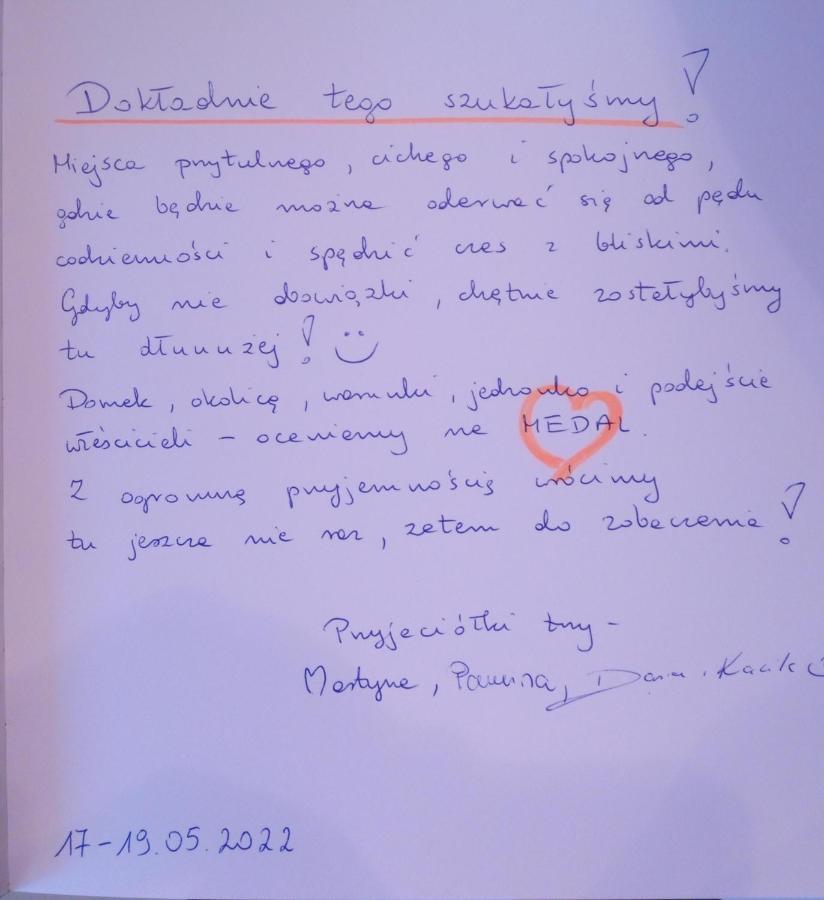 Dokładnie tego szukałyśmy!
Miejsca przytulnego, cichego i spokojnego,
gdzie będzie można oderwać się od pędu
codzienności i spędzić czas z bliskimi.
Gdyby nie obowiązki, chętnie zostałybyśmy
tu dłuuużej! :)
Domek, okolicę, warunki, jedzonko i podejście
właścicieli – oceniamy na MEDAL.
Z ogromną przyjemnością wrócimy
tu jeszcze nie raz, zatem do zobaczenia!
Przyjaciółki trzy –
Martyna, Paulina, Daria
17-19.05.2022